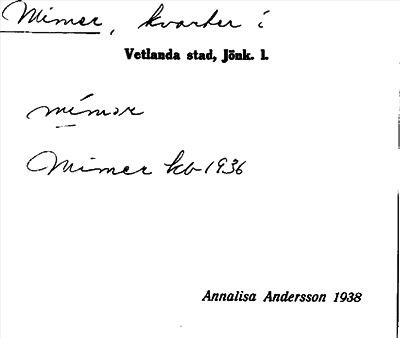 Mimer, kvarter i
Vetlanda stad, Jönk. l.
mímər
Mimer kb 1936
Annalisa Andersson 1938